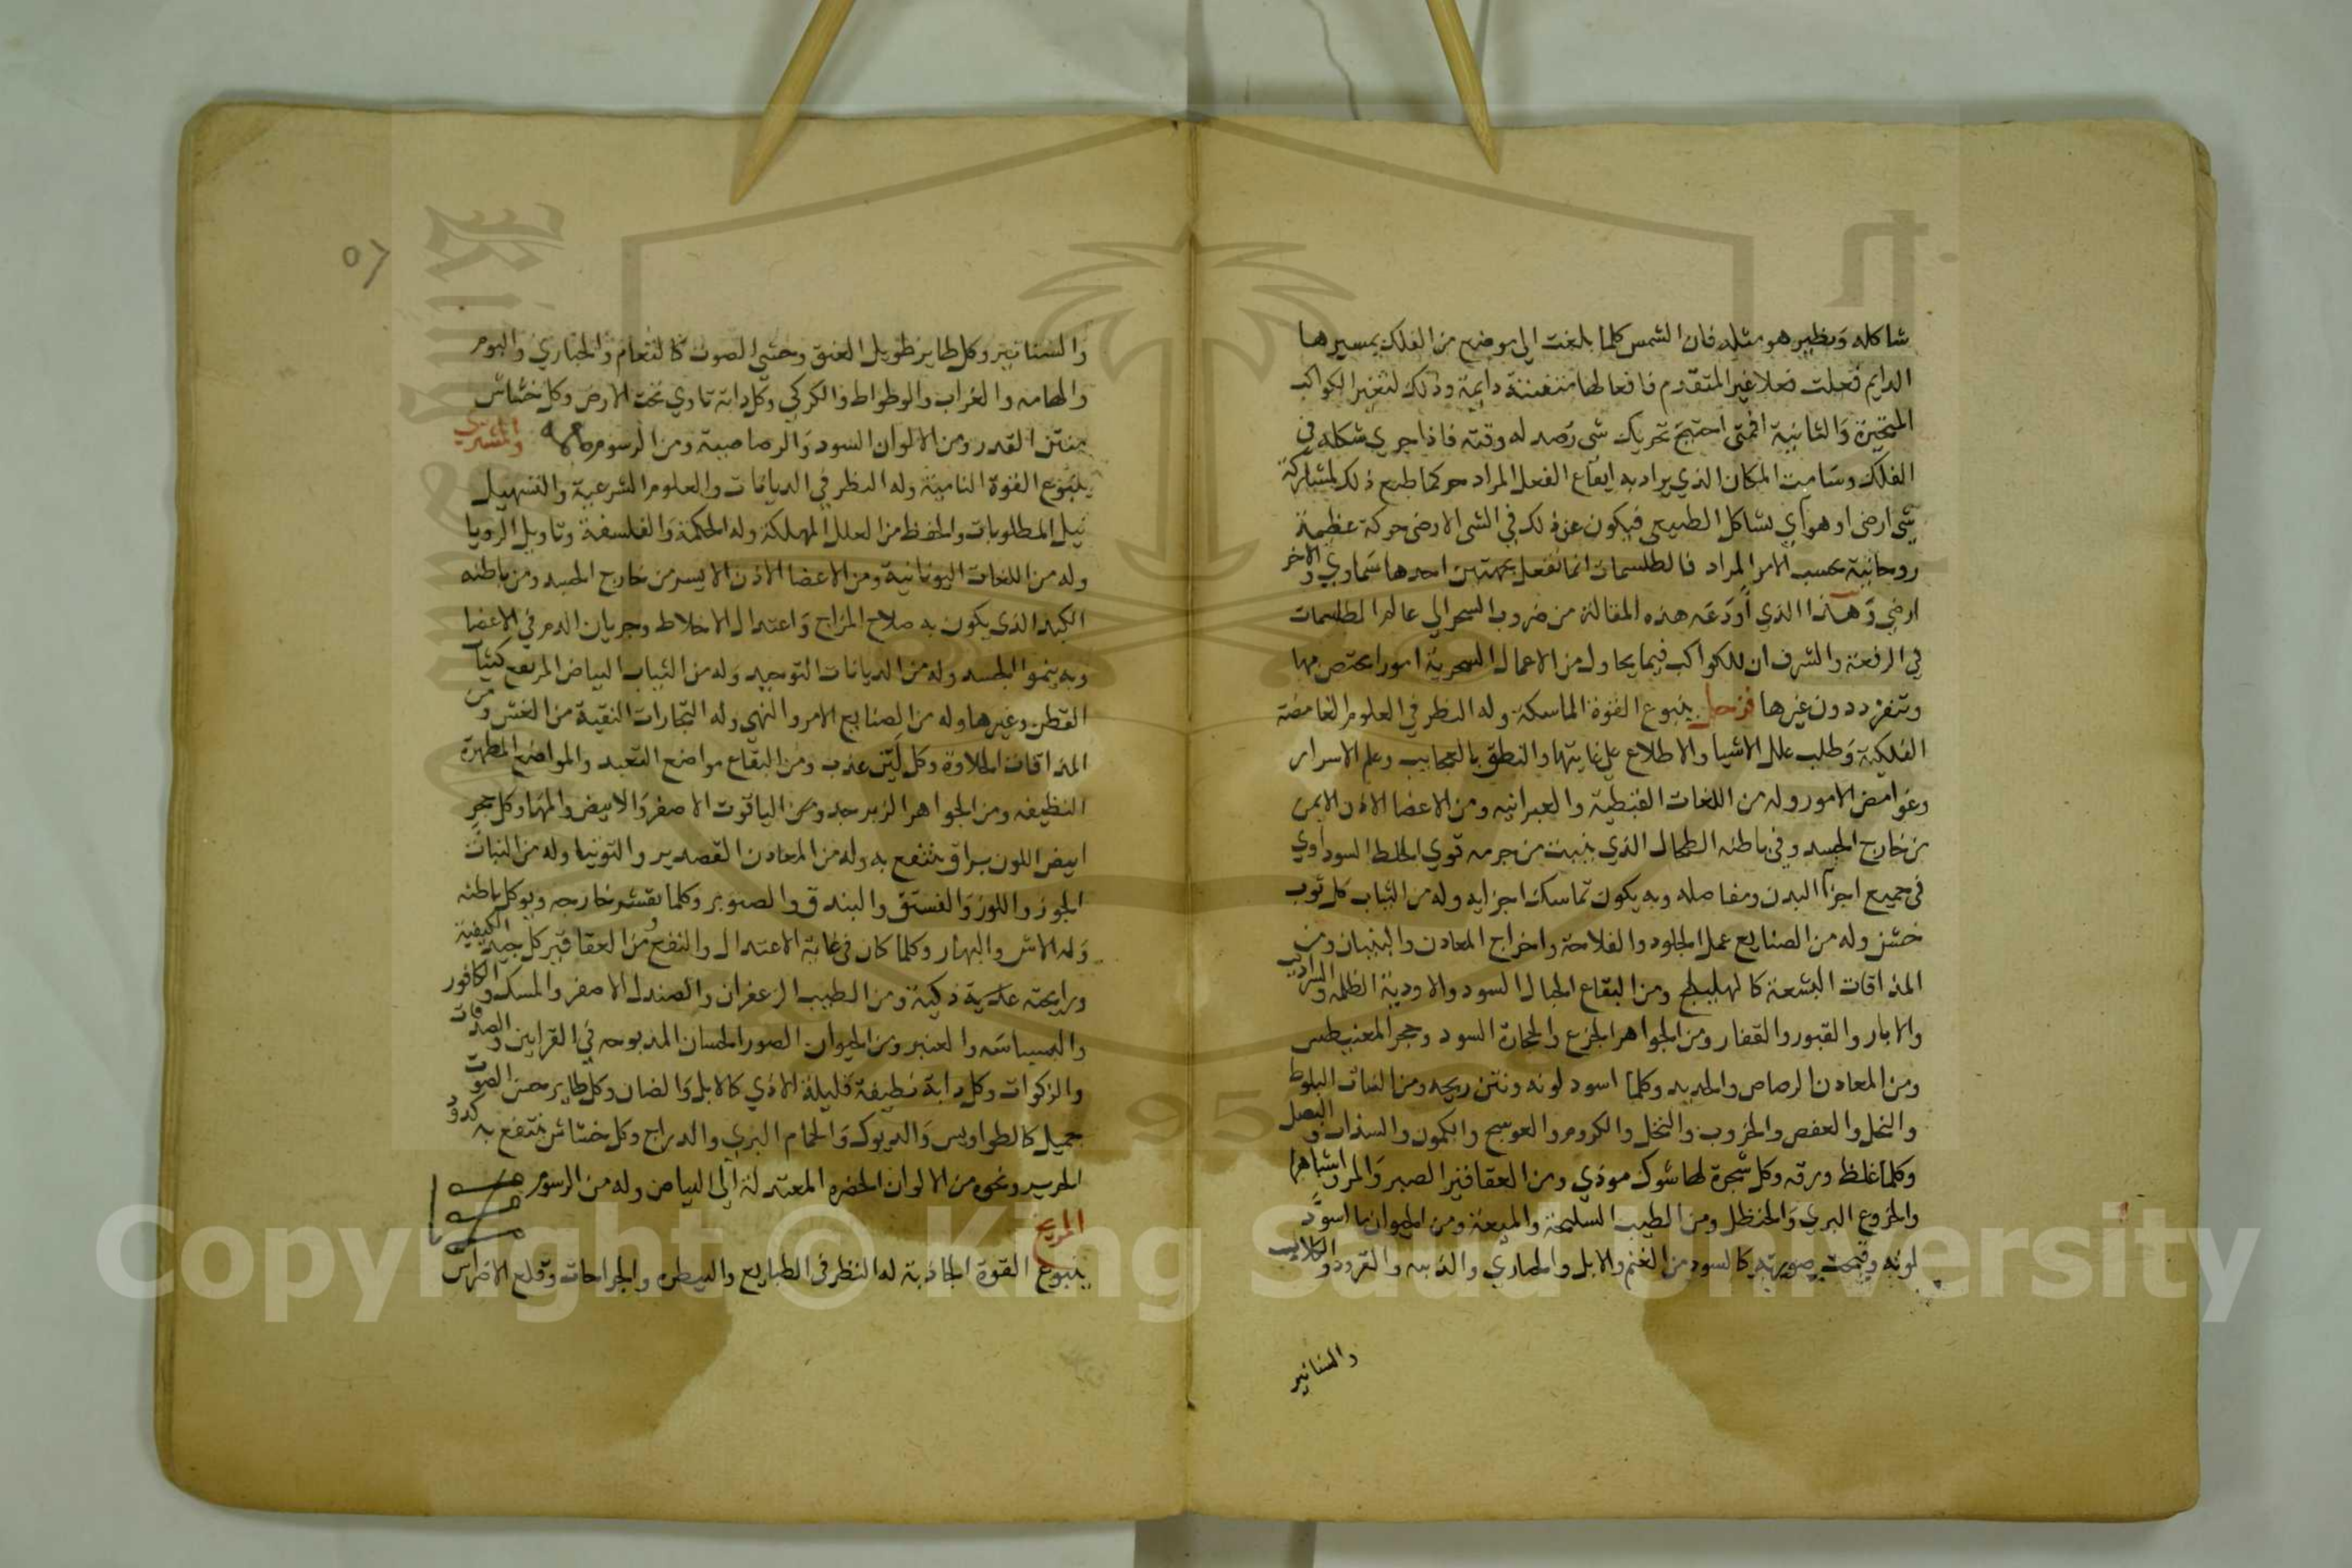 شاكله ونظيره هو مثله فان الشمس كلما بلغت الى موضع من الفلك بمسيرها
الدايم فعلت فعلا غير المتقدم فافعالها متفننة دايمة وذلك لتغير الكواكب
المتحيزة والثانية فمتى احتيج تحريك شى رصد له وقته فاذا جرى شكله في
الفلك وسامت المكان الذي يراد به ايقاع الفعل المراد حركما طبع ذلك لمشاركة
شى ارضى او هوآي يشاكل الطبيعى فيكون عن ذلك في الشى الارضى حركة عظيمة
روحانية بحسب الامر المراد فالطلسمات انما تفعل بجهتين احدها سماوي والاخر
ارضي وهذا الذي أودعه هذه المقالة من ضروب السحر الي عالم الطلسمات
في الرفعة والشرف ان للكواكب فيما يحاول من الاعمال السحرية امورا تختص بها
وتنفرد دون غيرها فزحل ينبوع القوة الماسكة وله النظر في العلوم الغامضة
الفلكية وطلب علل الاشيا والاطلاع علي غايتها والنطق بالعجايب وعلم الاسرار
وغوامض الامور وله من اللغات القبطية والعبرانيه ومن الاعضا الاذن الايمن
من خارج الجسد وفى باطنه الطحال الذي ينبث من جرمه قوي الخلط السوداوي
فى جميع اجزآ البدن ومفاصله وبه يكون تماسك اجزايه وله من الثياب كل ثوب
خشن وله من الصنايع عمل الجلود والفلاحة واخراج المعادن والبنيان ومن
المذاقات البشعة كالهليلج ومن البقاع الجبال السود والاودية الظلمه والسراديب
والابار والقبور والقفار ومن الجواهر الجزع والحجارة السود وحجر المغنيطس
ومن المعادن الرصاص والحديد وكلما اسود لونه ونتن ريحه ومن النبات البلوط
والنخل والعفص والخروب والنخل والكروم والعوسج والكمون والسذاب والبصل
وكلما غلظ ورقه وكل شجرة لها شوك موذي ومن العقاقير الصبر والمر واشباهها
والخروع البري والحنظل ومن الطيب السليخة والميعة ومن الحيوان ما اسود
لونه وقبحت صورته كالسود من الغنم والابل والحمارى والذيبه والقرود والكلاب
والسنانير
٥٢
والسنانير وكل طاير طويل العنق وحشى الصوت كالنعام والحباري والبوم
والهامه والغراب والوطواط والكركي وكل دابة تاوي تحت الارض وكل خشاش
منتن القدر ومن الالوان السود والرصاصية ومن الرسوم والمشتري
ينبوع القوة النامية وله النظر في الديانات والعلوم الشرعية والتسهيل
نيل المطلوبات والحفظ من العلل المهلكة وله الحكمة والفلسفة وتاويل الرويا
وله من اللغات اليونانية ومن الاعضا الاذن الايسر من خارج الجسد ومن باطنه
الكبد الذى يكون به صلاح المزاج واعتدال الاخلاط وجريان الدم في الاعضا
وبه ينمو الجسد وله من الديانات التوحيد وله من الثياب البياض المرتفع كثياب
القطن وغيرها وله من الصنايع الامر والنهي وله التجارات النقية من الغش ومن
المذاقات الحلاوة وكل لين عذب ومن البقاع مواضع التعبد والمواضع المطهرة
النظيفه ومن الجواهر الزبرجد ومن الياقوت الاصفر والابيض والمها وكل حجر
ابيض اللون براق ينتفع به وله من المعادن القصدير والتوتيا وله من النبات
الجوز واللوز والفستق والبندق والصنوبر وكلما تقشر خارجه ويوكل باطنه
وله الاس والبهار وكلما كان فى غاية الاعتدال والنفع ومن العقاقير كل جيد الكيفية
ورايحته عطرية ذكية ومن الطيب الزعفران والصندل الاصفر والمسك والكافور
والبسباسه والعنبر ومن الحيوان الصور الحسان المذبوحه في القرابين والصدقات
والزكوات وكل دابة نظيفة قليلة الاذي كالابل والضان وكل طاير حسن الصوت
جميل كالطواويس والديوك والحمام البري والدراج وكل خشاش ينتفع به كدود
الحرير ونحوه من الالوان الخضره المعتدلة الي البياض وله من الرسوم
المريخ
ينبوع القوة الجاذبة له النظر فى الطبايع والبيطره والجراحات وقلع الاضراس